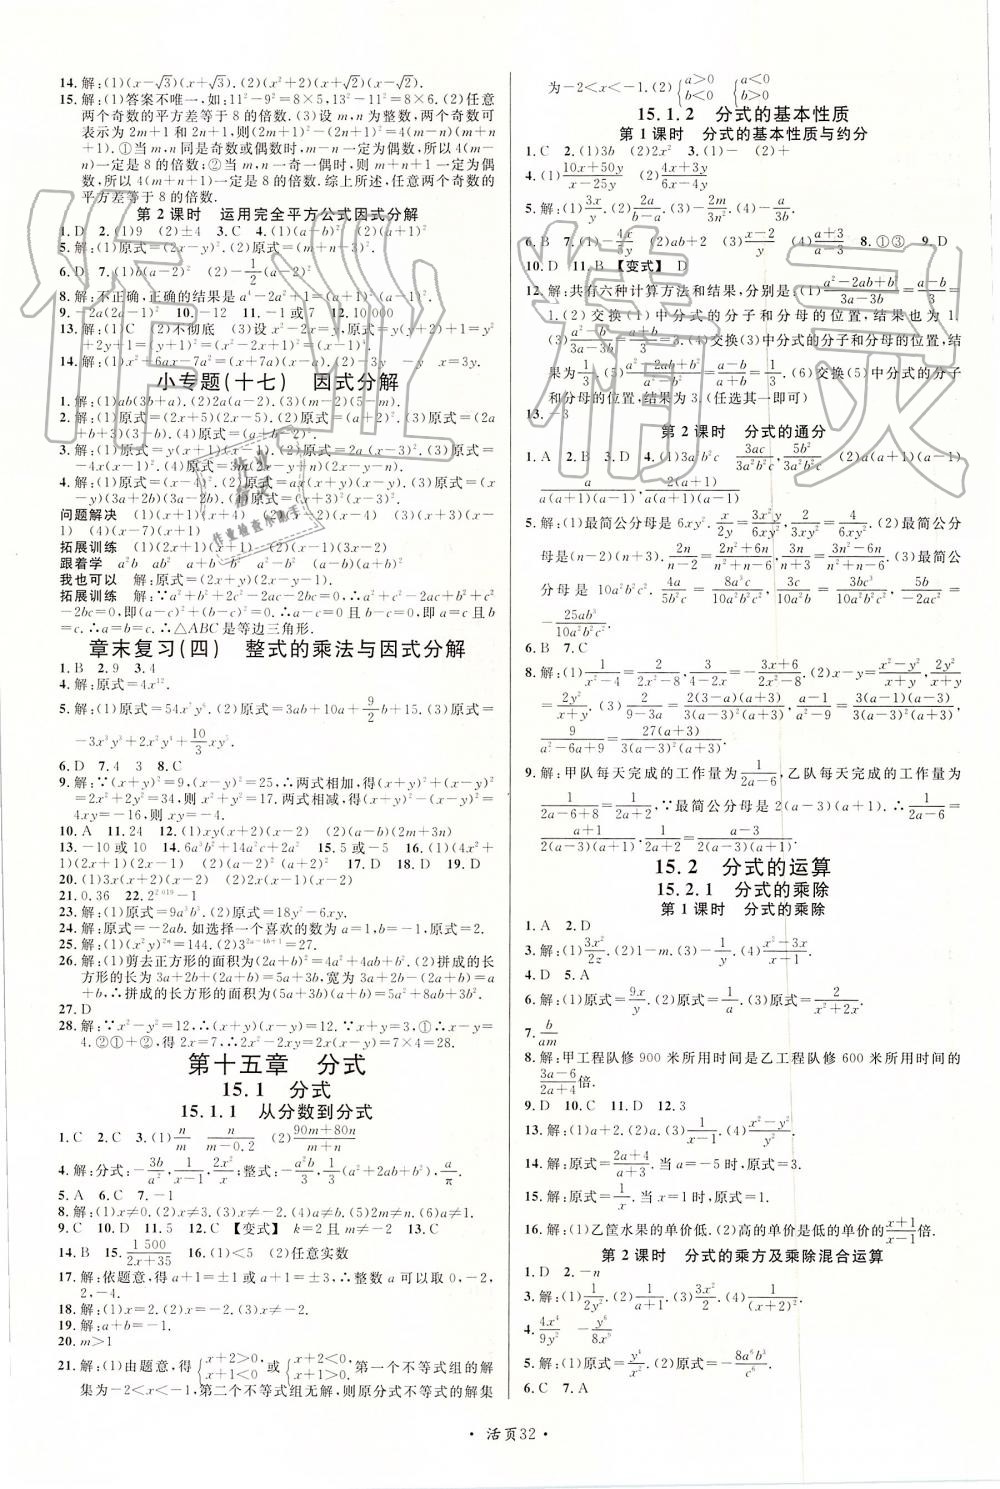 14.解:(1)(x-√3)(x+√3). (2)(x²+2)(x+√2)(x-√2).
15.解:(1)答案不唯一,如:11²-9²=8×5,13²-11²=8×6. (2)任意
两个奇数的平方差等于8的倍数. (3)设m,n为整数,两个奇数可
表示为2m+1和2n+1,则(2m+1)²-(2n+1)²=4(m-n)·
(m+n+1). ①当m,n同是奇数或偶数时,m-n一定为偶数,所以
4(m-n)一定是8的倍数;②当m,n一奇一偶时,则m+n+1一定为偶
数,所以4(m+n+1)一定是8的倍数. 综上所述,任意两个奇数的
平方差等于8的倍数.
第2课时 运用完全平方公式因式分解
1.D 2.(1)9 (2)±4 3.C 4.(1)(a+b)² (2)(a+1)²
5.解:(1)原式=(2x-y)². (2)原式=(m+n-3)².
6.D 7.(1)b(a-2)² (2)-1/2(a-b)²
8.解:不正确,正确的结果是a⁴-2a²+1=(a+1)²(a-1)².
9.-2a(2a-1)² 10.-12 11.-1或7 12.10 000
13.解:(1)C (2)不彻底 (3)设x²-2x=y,原式=y(y+2)+1=y²+
2y+1=(y+1)²=(x²-2x+1)²=(x-1)⁴.
14.解:(1)x²+6ax-7a²=(x+7a)(x-a). (2)x=y或x=3y.
小专题(十七) 因式分解
1.解:(1)ab(3b+a). (2)2a(a-2). (3)(m-2)(5-m).
2.解:(1)原式=(2x+5)(2x-5). (2)原式=(a+2b)². (3)原式=(2a
+b+3)(3-b). (4)原式=(a+b-2)².
3.解:(1)原式=y(x+1)(x-1). (2)原式=a(a-1)². (3)原式=
-4(x-1)². (4)原式=3m(2x-y)(2x+y).
4.解:(1)原式=(x-4)². (2)原式=(x+2)²(x-2)². (3)原式=
(3a+2b)(3a-2b). (4)原式=(x+y+1)(x-y-1).
问题解决 (1)(x+1)(x+4) (2)(x-2)(x-4) (3)(x+3)(x-
1) (4)(x-7)(x+1)
拓展训练 (1)(2x+1)(x+1) (2)(2x-1)(x-3)
跟着学 a²b ab² a²-b² (a-b)(a+b)
我也可以 解:原式=(2x+y)(2x-y-1).
拓展训练 解:∵a²+b²+2c²-2ac-2bc=0,∴a²-2ac+c²+b²
-2bc+c²=0,即(a-c)²+(b-c)²=0. ∴a-c=0且b-c=0,即a=c且
b=c. ∴a=b=c. ∴△ABC是等边三角形.
章末复习(四) 整式的乘法与因式分解
1.B 2.9 3.4
4.解:原式=4x¹².
5.解:(1)原式=54x⁷y⁶. (2)原式=3ab+10a+9/2b+15. (3)原式=
-3x³y³+2x²y⁴+10/3xy⁵.
6.D 7.4 3 8.C
9.解:∵(x+y)²=9,(x-y)²=25,∴两式相加,得(x+y)²+(x-y)²
=2x²+2y²=34,则x²+y²=17. 两式相减,得(x+y)²-(x-y)²=
4xy=-16,则xy=-4.
10.A 11.24 12.(1)xy(x+2)(x-2) (2)(ab-4)(ab+10)
13.-10或10 14.6a³+14a²+8a 15.5或-5 16.(1)(4x²+
9y²)(2x+3y)(2x-3y) (2)(a-b+1)² 17.D 18.D 19.D
20.(1)3x(2x-3)(x-2) (2)2(x+2)(x-2)
21.0.36 22.2²⁰¹⁹-1
23.解:(1)原式=9a³b³. (2)原式=12x-10.
24.解:原式=-2ab. 如选择一个喜欢的数为a=1,b=-1,原式=2.
25.解:(1)(x²y)²ⁿ=144. (2)3^(2a-4b+1)=27.
26.解:(1)剪去正方形的面积为(2a+b)²=4a²+4ab+b². (2)拼成的长
方形的长为3a+2b+(2a+b)=5a+3b,宽为3a+2b-(2a+b)=a
+b,∴拼成的长方形的面积为(5a+3b)(a+b)=5a²+8ab+3b².
27.D
28.解:∵x²-y²=12,∴(x+y)(x-y)=12. ∵x+y=3,①∴x-y=
4. ②①+②,得2x=7,∴2x²-2xy=2x(x-y)=7×4=28.
第十五章 分式
15.1 分式
15.1.1 从分数到分式
1.C 2.C 3.(1)n/m n/(m-0.2) (2)(90m+80n)/(m+n)
4.解:分式:-3b/a²,1/(x-1),2x²/x;整式:-a²b/3,1/3(x+y),a/π.
5.A 6.C 7.-1
8.解:(1)x≠0. (2)x≠3. (3)x≠-3/2. (4)a≠b. (5)2x≠3y. (6)a≠1.
9.C 10.D 11.5 12.C 【变式】 k=2且m≠-2 13.C
14.B 15.1 500/(2x+35) 16.(1)<5 (2)任意实数
17.解:依题意,得a+1=±1或a+1=±3. ∴整数a可以取0,-2,
2,-4.
18.解:(1)x=2. (2)x=-2. (3)x=-1.
19.解:a+b=-1.
20.m>1
21.解:(1)由题意,得{x+2>0,x+1<0或{x+2<0,x+1>0,第一个不等式组的解
集为-2<x<-1,第二个不等式组无解,则原分式不等式的解集
为-2<x<-1. (2){a>0,b<0或{a<0,b>0
15.1.2 分式的基本性质
第1课时 分式的基本性质与约分
1.C 2.(1)3b (2)2x² 3.(1)- (2)+
4.(1)(10x+50y)/(x-25y) (2)(4x+3y)/(6x-4y)
5.解:(1)3x/y. (2)2a/(b-a). (3)-2m/3n². (4)-a/3.
6.B 7.(1)-4x/3y (2)ab+2 (3)(x-2)/y (4)(a+3)/(a-3) 8.①③ 9.D
10.D 11.B 【变式】 D
12.解:共有六种计算方法和结果,分别是:(1)(a²-2ab+b²)/(3a-3b)=(a-b)/3=
1. (2)交换(1)中分式的分子和分母的位置,结果也为1.
(3)(a²-b²)/(3a-3b)=(a+b)/3=3. (4)交换(3)中分式的分子和分母的位置,结
果为1/3. (5)(a²-b²)/(a²-2ab+b²)=(a+b)/(a-b)=3. (6)交换(5)中分式的分子
和分母的位置,结果为1/3. (任选其一即可)
13.-3
第2课时 分式的通分
1.A 2.B 3.D 4.(1)3a²b²c 3ac/3a²b²c 5b²/3a²b²c (2)a(a+1)(a-1)
a/(a(a+1)(a-1)) (a+1)/(a(a+1)(a-1))
5.解:(1)最简公分母是6xy². x/2y=3x²y/6xy²,2/3xy²=4/6xy². (2)最简公分
母是(n-2)(n+3). 2n/(n-2)=(2n²+6n)/(n²+n-6),3n/(n+3)=(3n²-6n)/(n²+n-6). (3)最简公
分母是10a²b²c². 4a/5b²c=8a³c/10a²b²c²,5b/2a²c²=...,
-25ab³/10a²b²c².
6.B 7.C
8.解:(1)1/(x²-4)=2/(2x²-8),x/(4-2x)=-(x²+2x)/(2x²-8). (2)x-y=(x²-y²)/(x+y),2y²/(x+y)
=2y²/(x+y). (3)2/(9-3a)=2(3-a)(a+3)/(3(a-3)²(a+3)),(a-1)/(a²-9)=3(a-1)(a-3)/(3(a-3)²(a+3)),
9/(a²-6a+9)=27(a+3)/(3(a-3)²(a+3)).
9.解:甲队每天完成的工作量为1/(2a-6),乙队每天完成的工作量为
1/(2a-6+8)=1/(2a+2),∵最简公分母是2(a-3)(a+1). ∴1/(2a-6)=
(a+1)/(2(a-3)(a+1)),1/(2a+2)=(a-3)/(2(a-3)(a+1)).
15.2 分式的运算
15.2.1 分式的乘除
第1课时 分式的乘除
1.A 2.D
3.解:(1)3x²/2z. (2)1-m. (3)-1/y. (4)(x²-3x)/(x-1).
4.D 5.A
6.解:(1)原式=9x/y. (2)原式=1/x. (3)原式=2/(x²+2x).
7.b/am
8.解:甲工程队修900米所用时间是乙工程队修600米所用时间的
(3a-6)/(2a+4)倍.
9.D 10.C 11.D 12.3
13.解:(1)a+2. (2)a. (3)1/(x-1). (4)(x²-y²)/y².
14.解:原式=(2a+4)/(a+3). 当a=-5时,原式=3.
15.解:原式=1/x. 当x=1时,原式=1.
16.解:(1)乙筐水果的单价低. (2)高的单价是低的单价的(x+1)/(x-1)倍.
第2课时 分式的乘方及乘除混合运算
1.D 2.-n
3.解:(1)1/2y². (2)1/(a+1). (3)2x²/3. (4)-1/(x+2)².
4.4x⁴/9y² -y⁶/8x³
5.解:(1)原式=y⁴/x². (2)原式=-8a⁶b³/c⁶.
6.C 7.A
• 活页32 •
作业精灵
作业检查小助手